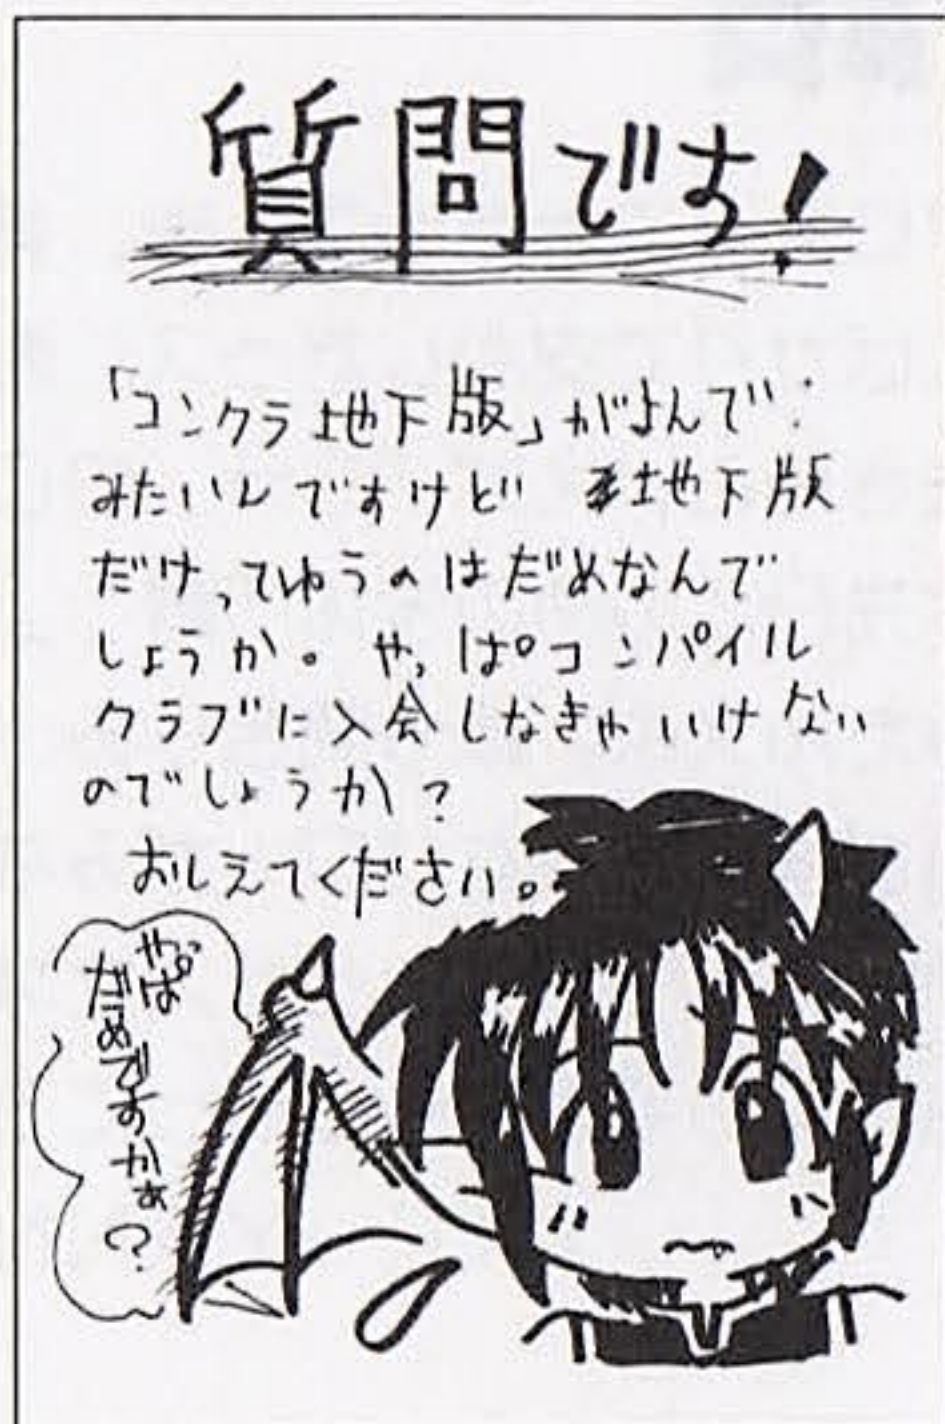 質問です!
「コンクラ地下版」がよんで
みたいんですけど 地下版
だけってゆうのはだめなんで
しょうか。やっぱコンパイル
クラブに入会しなきゃいけない
のでしょうか?
おしえてください。
やっぱ
だめですかぁ?